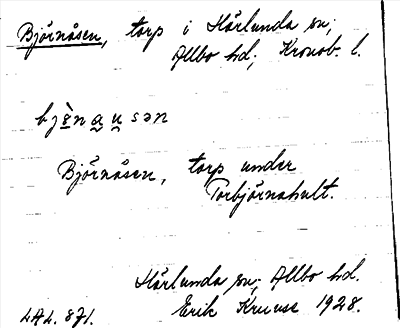 Björnåsen, torp i Härlunda sn;
Allbo hd; Kronob. l.
bjö̀nausən
Björnåsen, torp under
Torbjörnahult.
Härlunda sn; Allbo hd.
LAL. 871. Erik Kruuse 1928.